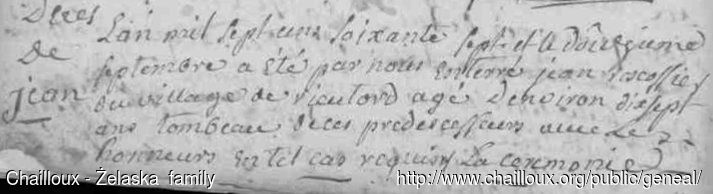 Deces
de
jean
Lan mil sept cens soixante sept et le douzieme
septembre a été par nous enterré jean
du village de rieutord agé denviron dixsept
ans tombeau de ces predescesseurs avec Le
honneurs en tel cas requis La ceremonie
Chailloux - Żelaska family
http://www.chailloux.org/public/geneal/